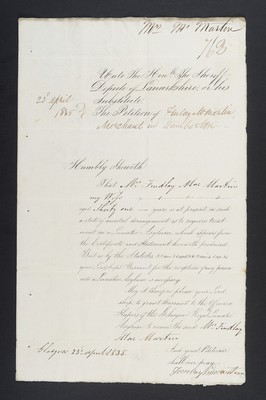 Mrs Mc Martin
763
Unto The Honble The Sheriff
Depute of Lanarkshire, or his
Substitute
23d April
1835
The Petition of Finlay McMartin
Merchant in
Humbly Sheweth
That Mrs Findlay Mac Martin
my Wife
aged Thirty one years is at present in such
a state of mental derangement as to require treat-
ment in a Lunatic Asylum, which appears from
the Certificate and Statement herewith produced
That as by the Statutes
your Lordships Warrant for the reception of any person into
a Lunatic Asylum is necessary
May it therefore please your Lord-
ship to grant Warrant to the
of the Glasgow Royal Lunatic
Asylum to the said Mrs Findlay
Mac Martin
Glasgow 23d april 1835
And your Petitioner
shall ever pray
Finlay McMartin